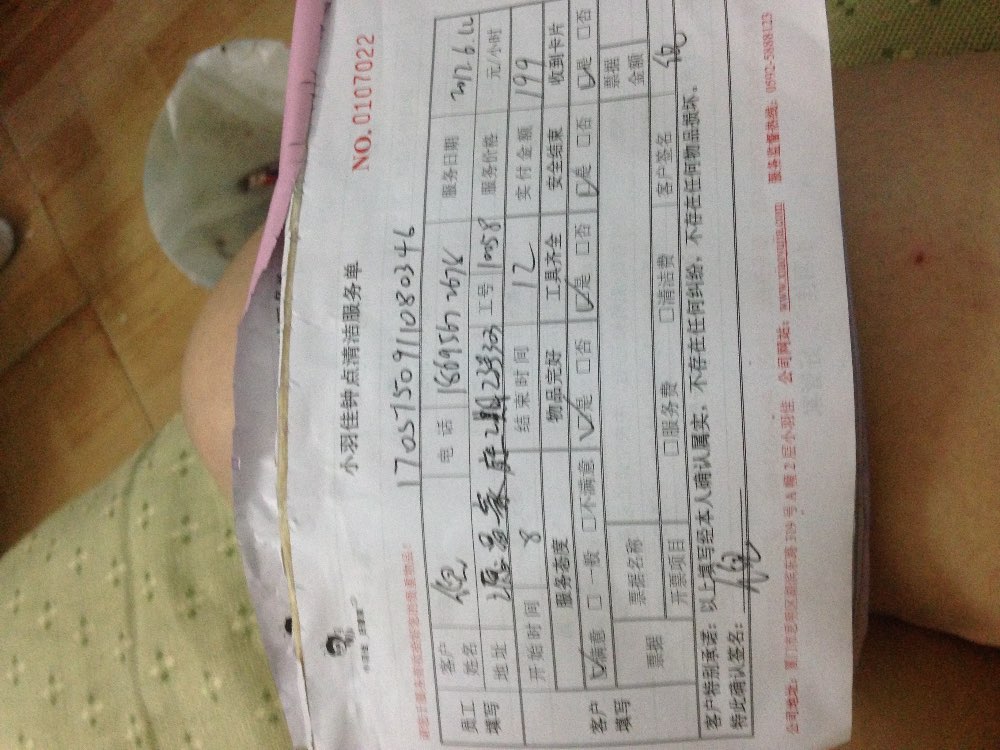 小羽佳钟点清洁服务单
NO.0107022
1705750911080346
员工填写 客户姓名 电话 服务日期 2017.6.12
地址 工号 10058 服务价格 元/小时
开始时间 8 结束时间 12 实付金额 199
客户填写 服务态度 物品完好 工具齐全 安全结束 收到卡片
☑满意 □一般 □不满意 ☑是 □否 ☑是 □否 ☑是 □否 ☑是 □否
票据 票据名称 票据金额
开票项目 □服务费 □清洁费 客户签名
客户特别承诺：以上填写经本人确认属实，不存在任何纠纷，不存在任何物品损坏。
特此确认签名：
公司地址：厦门市思明区湖滨东路319号A幢2层小羽佳 公司网站：www.xiaoyujia.com 服务监督热线：0592-5888123